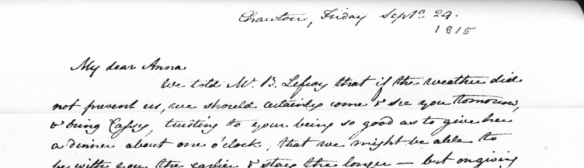 Chawton, Friday Septr. 29.
1815
My dear Anna
We told Mr. B. Lefroy that if the weather did
not prevent us, we should certainly come & see you tomorrow,
& bring Cassy, trusting to your being so good as to give her
a dinner about one o'clock, that we might be able to
be with you the earlier & stay the longer — but on giving